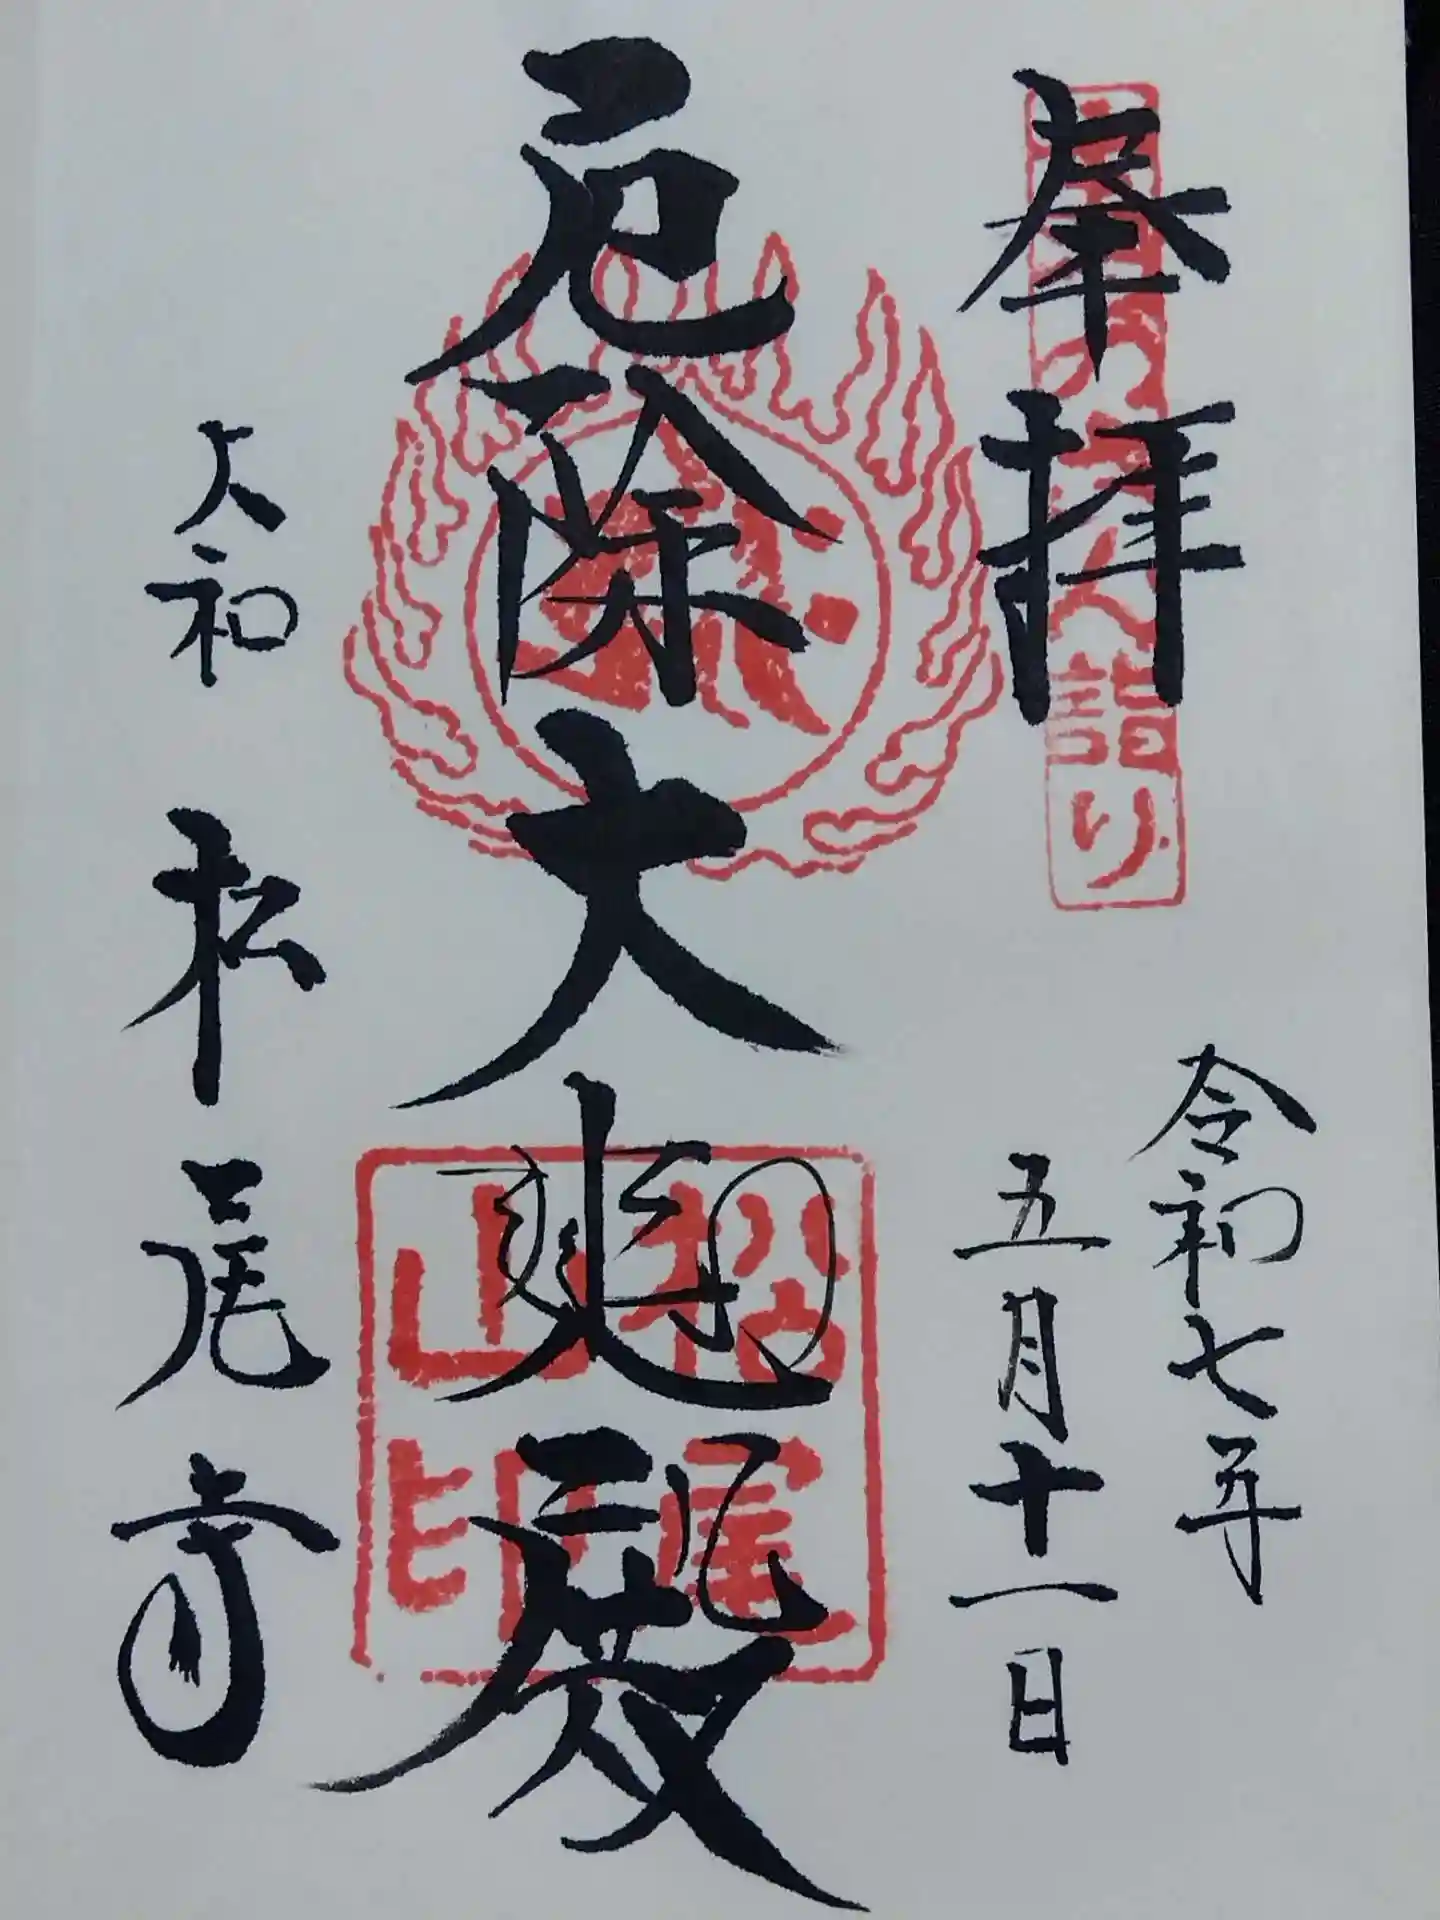 奉拝
詣り
令和七年
五月十一日
厄除大悲殿
松尾
山印
大和 松尾寺